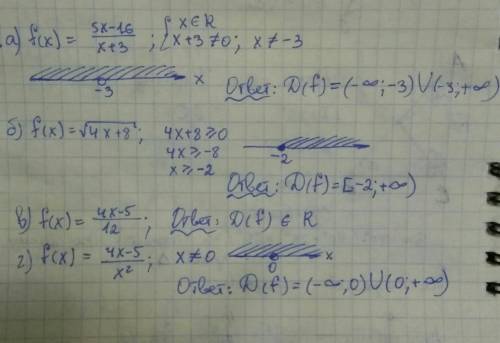 а) f(x) = (5x-16)/(x+3) ; { x∈R
x+3≠0; x≠-3
-3 x
Ответ: D(f)=(-∞;-3)∪(-3;+∞)
б) f(x)=√(4x+8); 4x+8≥0
4x≥-8
x≥-2
-2
Ответ: D(f)=[-2;+∞)
в) f(x)=(4x-5)/12; Ответ: D(f)∈R
г) f(x)=(4x-5)/x²; x≠0
0 x
Ответ: D(f)=(-∞;0)∪(0;+∞)